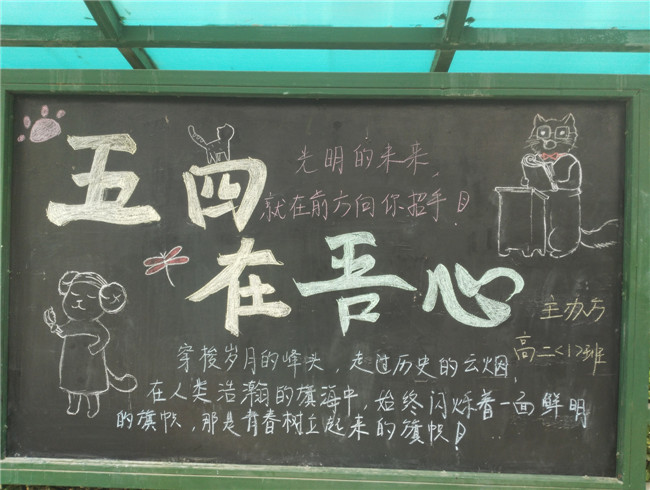 五四
光明的未来,
就在前方向你招手!
在吾心
主办方
高二<1>班
穿梭岁月的峰头,走过历史的云烟,
在人类浩瀚的旗海中,始终闪烁着一面鲜明
的旗帜,那是青春树立起来的旗帜!